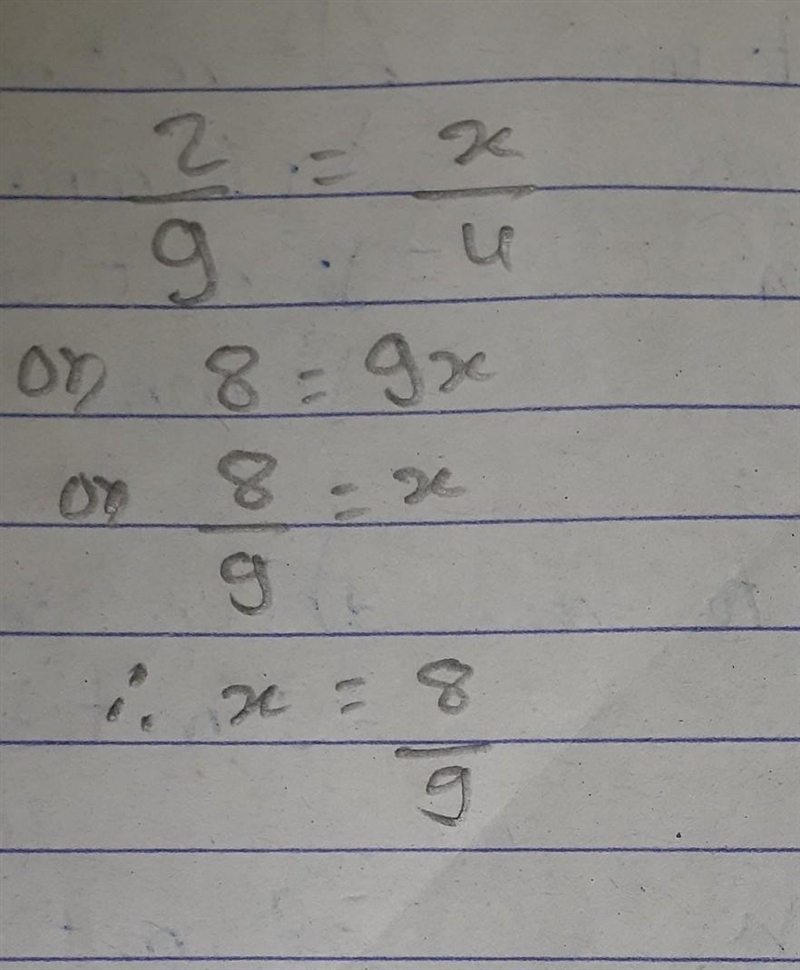 2/9 = x/4
or 8 = 9x
or 8/9 = x
∴ x = 8/9